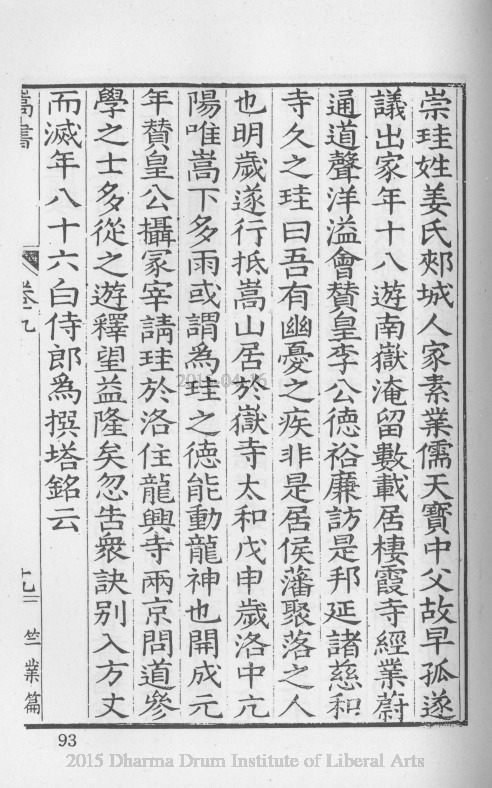 崇珪姓姜氏郟城人家素業儒天寶中父故早孤遂
議出家年十八遊南嶽淹留數載居棲霞寺經業蔚
通道聲洋溢會贊皇李公德裕廉訪是邦延諸慈和
寺久之珪曰吾有幽憂之疾非是居侯藩聚落之人
也明歲遂行抵嵩山居於嶽寺太和戊申歲洛中亢
陽唯嵩下多雨或謂為珪之德能動龍神也開成元
年贊皇公攝冡宰請珪於洛住龍興寺兩京問道參
學之士多從之遊釋望益隆矣忽告衆訣別入方丈
而滅年八十六白侍郎為撰塔銘云
嵩書
卷九
竺業篇
93
2015 Dharma Drum Institute of Liberal Arts